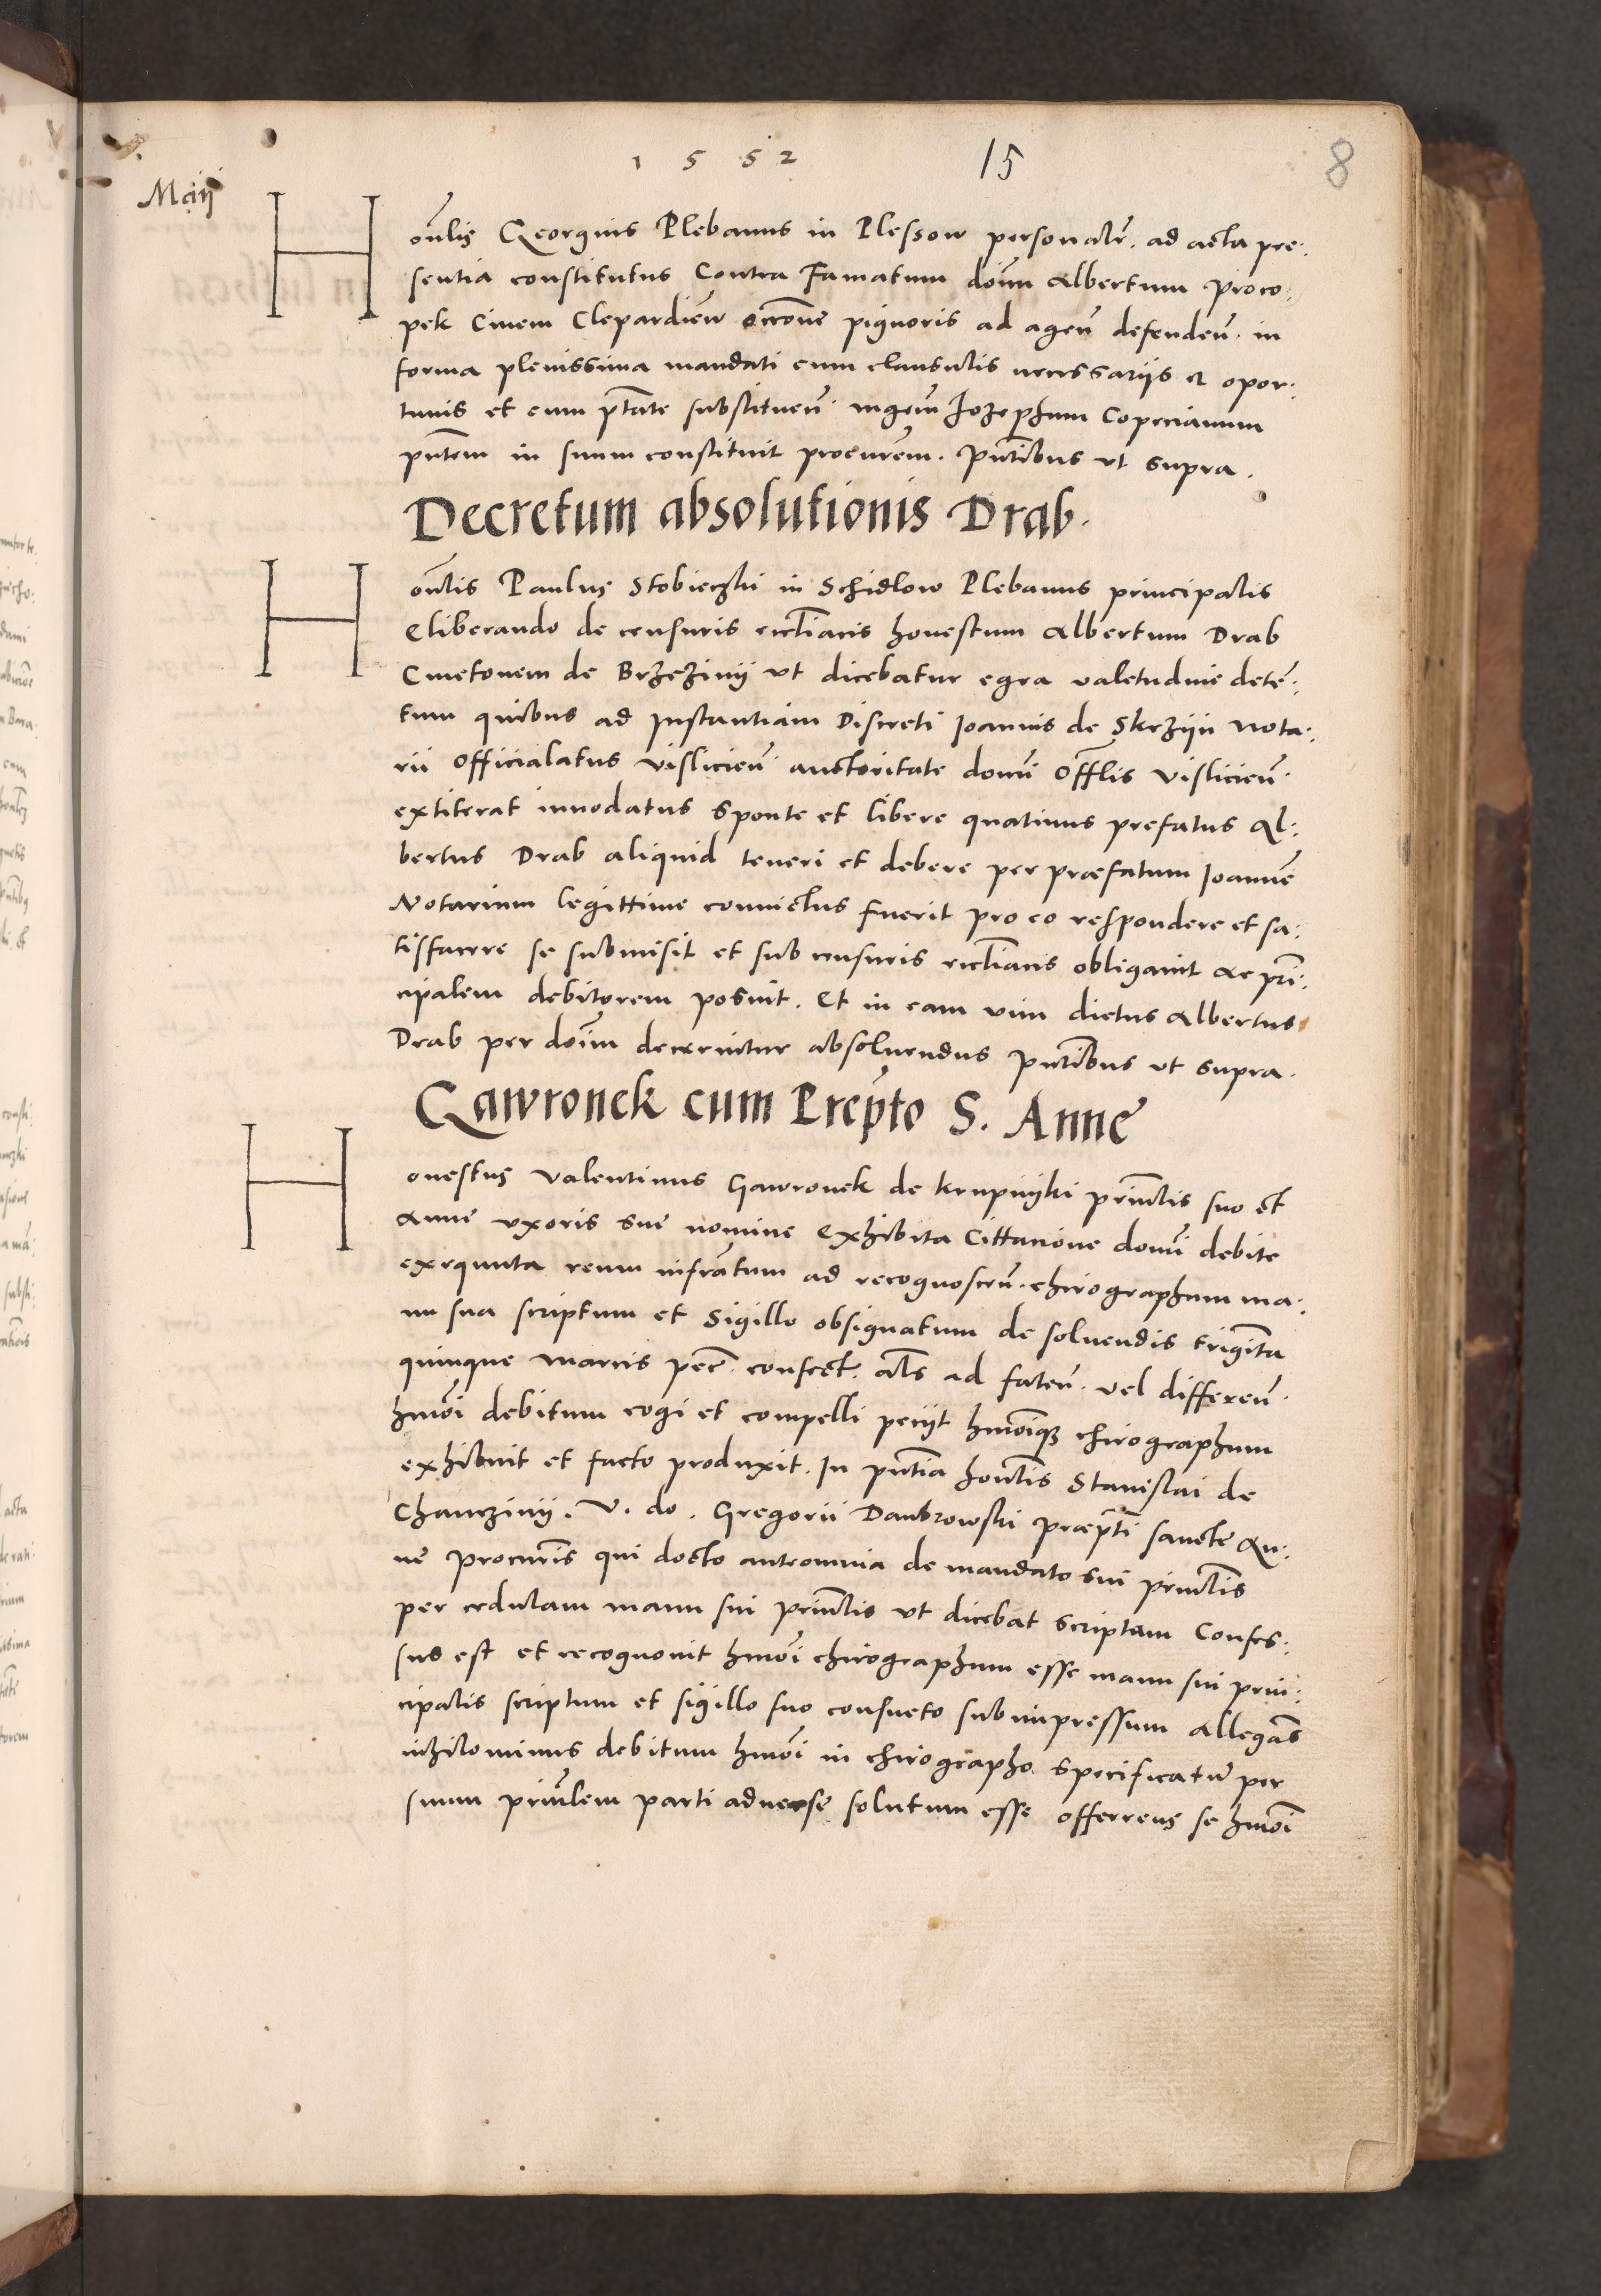 1552 15 8
Maij
Honlis Georgius Plebanus in Plessow personalr. ad acta pre:
sentia constitutus Contra Famatum doim Albertum Proco:
pek Ciuem Clepardien occone pignoris ad agen defenden. in
forma plenissima mandati cum clausulis necessariis et opor:
tunis et cum ptate substituen mgrm Jozephum Copecianum
pntem in suum constituit procurem. Pntibus ut supra.
Decretum absolutionis Drab.
Honlis Paulus Stobieczki in Schidlow Plebanus principalis
Eliberando de censuris eccliacis honestum Albertum Drab
Cmetonem de Brzezinij ut dicebatur egra valetudine deten:
tum quibus ad Instantiam Discreti Ioannis de Skrzijn Nota:
rii Officialatus Vislicien auctoritate domi Offlis Vislicien.
extiterat innodatus sponte et libere quatinus prefatus Al:
bertus Drab aliquid teneri et debere per præfatum Ioanne
Notarium legittime conuictus fuerit pro eo respondere et sa:
tisfacere se submisit et sub censuris eccliacis obligauit ac prin:
cipalem debitorem posuit. Et in eam vim dictus Albertus
Drab per doim decernitur absoluendus Pntibus ut supra.
Gawronek cum Prepto S. Anne
Honestus Valentinus Gawronek de Krupnijki prinlis suo et
Anne uxoris sue nomine Exhibita Cittacione domi debite
exequuta reum infratum ad recognoscen. chirographum ma:
nu sua scriptum et Sigillo obsignatum de soluendis triginta
quinque marcis pec. confect. als ad faten. vel differen.
hmoi debitum cogi et compelli petijt hmoique chirographum
exhibuit et facto produxit. In pntia honlis Stanislai de
Chanczinij. V. do. Gregorii Dambrowski præpti sancte An:
ne procuris qui docto anteomnia de mandato sui prinlis
per cedulam manu sui prinlis ut dicebat scriptam Confes:
sus est et recognouit hmoi chirographum esse manu sui prin:
cipalis scriptum et sigillo suo consueto subimpressum Allegans
nihilominus debitum hmoi in chirographo specificatum per
suum prinlem parti aduerse solutum esse offerrens se hmoi